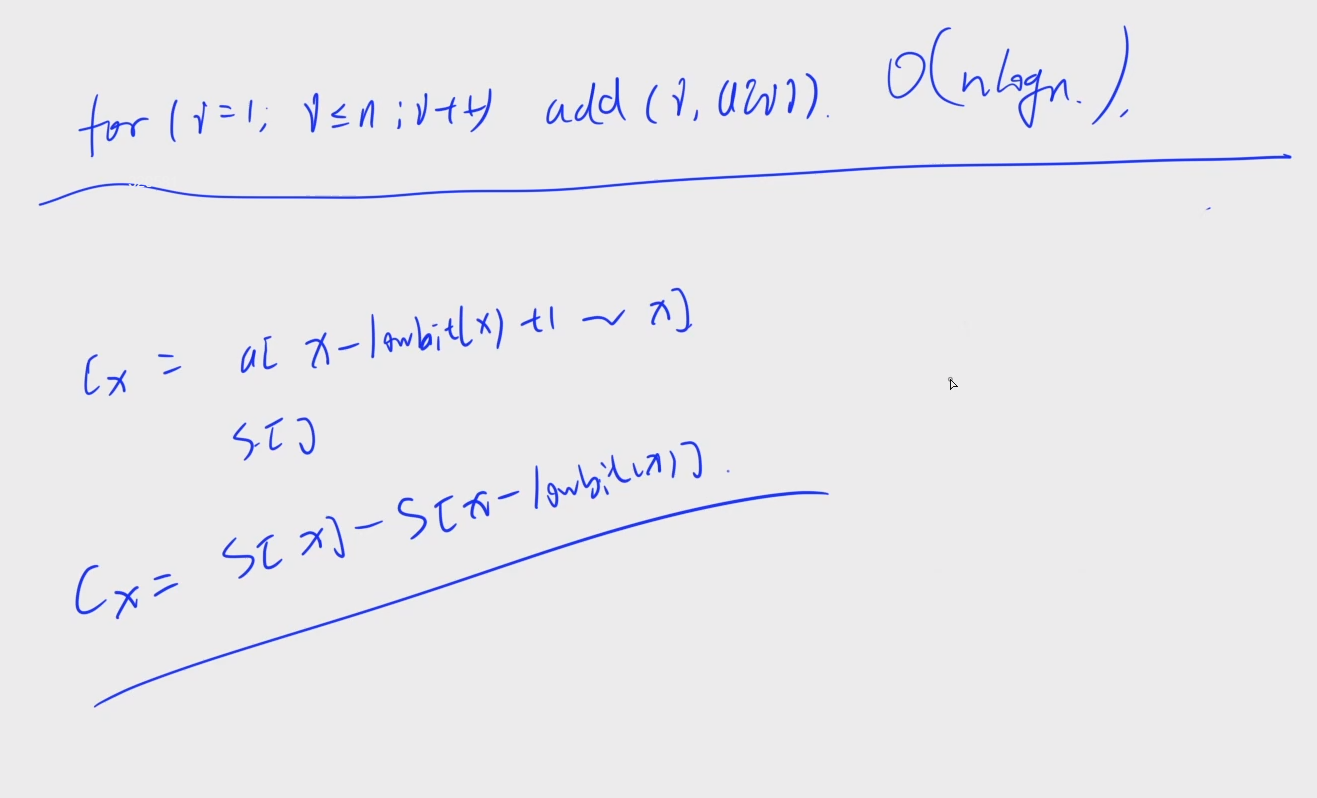 for (i=1; i≤n; i++) add(i, a[i]). O(nlogn.),
Cx = a[x-lowbit(x)+1 ~ x]
S[]
Cx = S[x]-S[x-lowbit(x)].